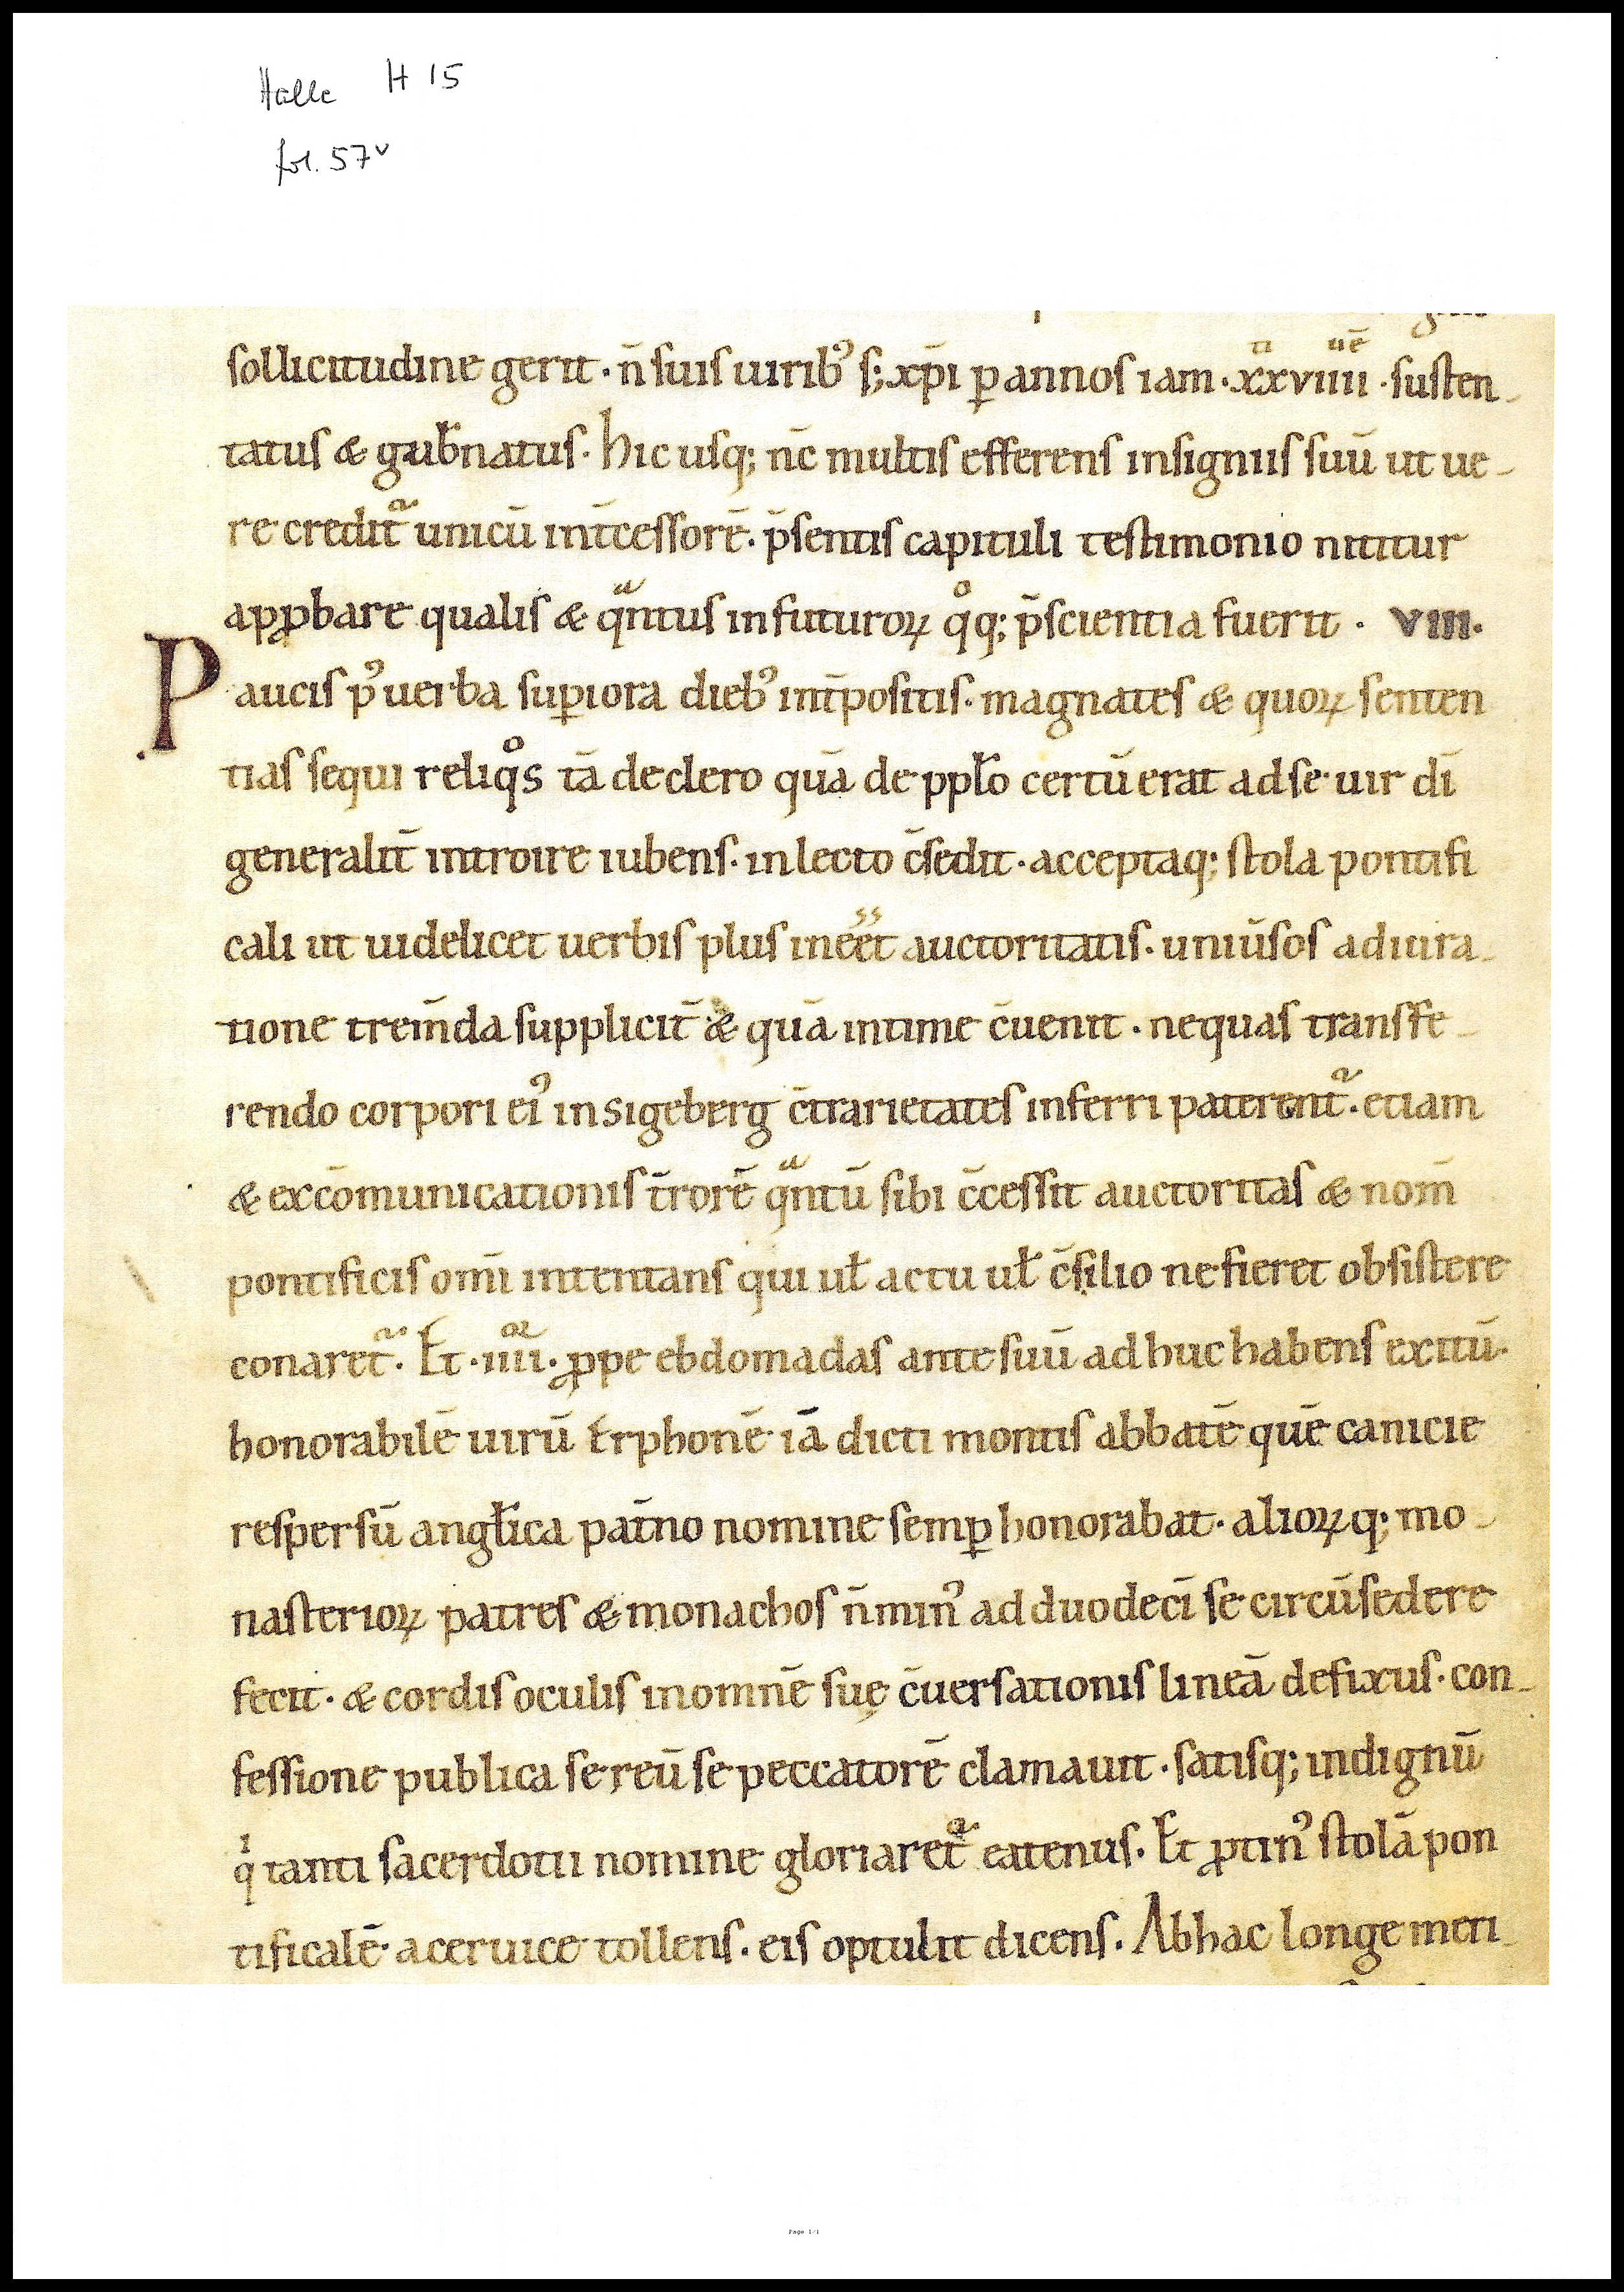 Halle H 15
fol. 57v
sollicitudine gerit · n̄ suis uirib᾽ s; xp̄i ꝑ annos iam · xxviiii · susten-
tatus & gub̄natus. hic usq; nc̄ multis efferens insigniis suū ut ue-
re creditᷓ unicū int̄cessorē. p̄sentis capituli testimonio nititur
apꝓbare qualis & qᷓntus in futuroꝝ qͦq; p̄scientia fuerit . VIII.
Paucis p᾽ uerba suꝑiora dieb᾽ int̄positis. magnates & quoꝝ senten
tias sequi reliqͦs tā de clero quā de ppło certū erat ad se uir dī
generalit̄ introire iubens. in lecto c̄sedit. acceptaq; stola pontifi
cali ut uidelicet uerbis plus ineēt auctoritatis. uniūsos adiura-
tione trem̄da supplicit̄ & quā intime c̄uenit. ne quas transfe-
rendo corpori ei᾽ in sigeberg c̄trarietates inferri paterentᷓ. etiam
& excōmunicationis t̄rorē qᷓntū sibi c̄cessit auctoritas & nom̄
pontificis om̄i intentans qui uł actu uł c̄silio ne fieret obsistere
conaretᷓ. Et · iiii · ꝓpe ebdomadas ante suū adhuc habens exitū.
honorabilē uirū erphonē iā dicti montis abbatē quē canicie
respersū angłica pat̄no nomine semꝑ honorabat. alioꝝq; mo-
nasterioꝝ patres & monachos n̄ min᾽ ad duodecī se circūsedere
fecit. & cordis oculis in omnē suę c̄uersationis lineā defixus. con-
fessione publica se reū se peccatorē clamauit. satisq; indignū
qͥ tanti sacerdotii nomine gloriaretᷓ eatenus. Et ꝓtin᾽ stolā pon
tificalē a ceruice tollens. eis optulit dicens. Ab hac longe meti-
Page 1/1